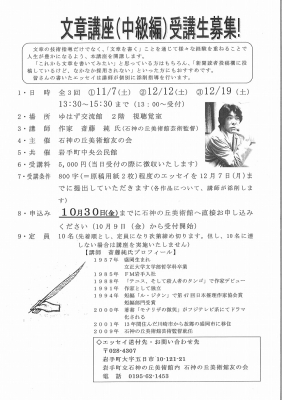 文章講座(中級編)受講生募集!
文章の技術指導だけでなく、「文章を書く」ことを通じて様々な経験を重ねることで
人生が豊かになるよう、本講座を開講します。
「これから文章を書いてみたい」と思っている方はもちろん、「新聞読者投稿欄に投
稿しているけど、なかなか採用されない」といった方にもおすすめです。
皆さんの書いたエッセイを講師が個別に添削指導を行います。
1・日 時 全3回 ①11/7(土) ②12/12(土) ③12/19(土)
13:30~15:30まで (13:00~受付)
2・場 所 ゆはず交流館 2階 視聴覚室
3・講 師 作家 斎藤 純 氏(石神の丘美術館芸術監督)
4・主 催 石神の丘美術館友の会
5・共 催 岩手町中央公民館
6・受講料 5,000円(当日受付の際に徴収いたします)
7・受講条件 800字(=原稿用紙2枚)程度のエッセイを12月7日(月)ま
でに提出していただきます(各作品について、講師が添削しま
す)
8・申込み 10月30日(金)までに石神の丘美術館へ直接お申し込み
ください(10月9日(金)から受付開始)
9・定 員 10名(先着順とし、定員になり次第締め切ります。但し、10名に達
しない場合は講座を実施いたしません)
【講師 斎藤純氏プロフィール】
1957年 盛岡生まれ
立正大学文学部哲学科卒業
1985年 FM岩手入社
1988年 『テニス、そして殺人者のタンゴ』で作家デビュー
1991年 作家として独立
1994年 短編『ル・ジタン』で第47回日本推理作家協会賞
短編部門受賞
2000年 著書『モナリザの微笑』がフジテレビ系にてドラマ
化される
2001年 13年間住んだ川崎市から故郷の盛岡市に移住
2009年 石神の丘美術館芸術監督就任
○エッセイ送付先・お問い合わせ先
〒028-4307
岩手町大字五日市10-121-21
岩手町立石神の丘美術館内 石神の丘美術館友の会
電話 0195-62-1453